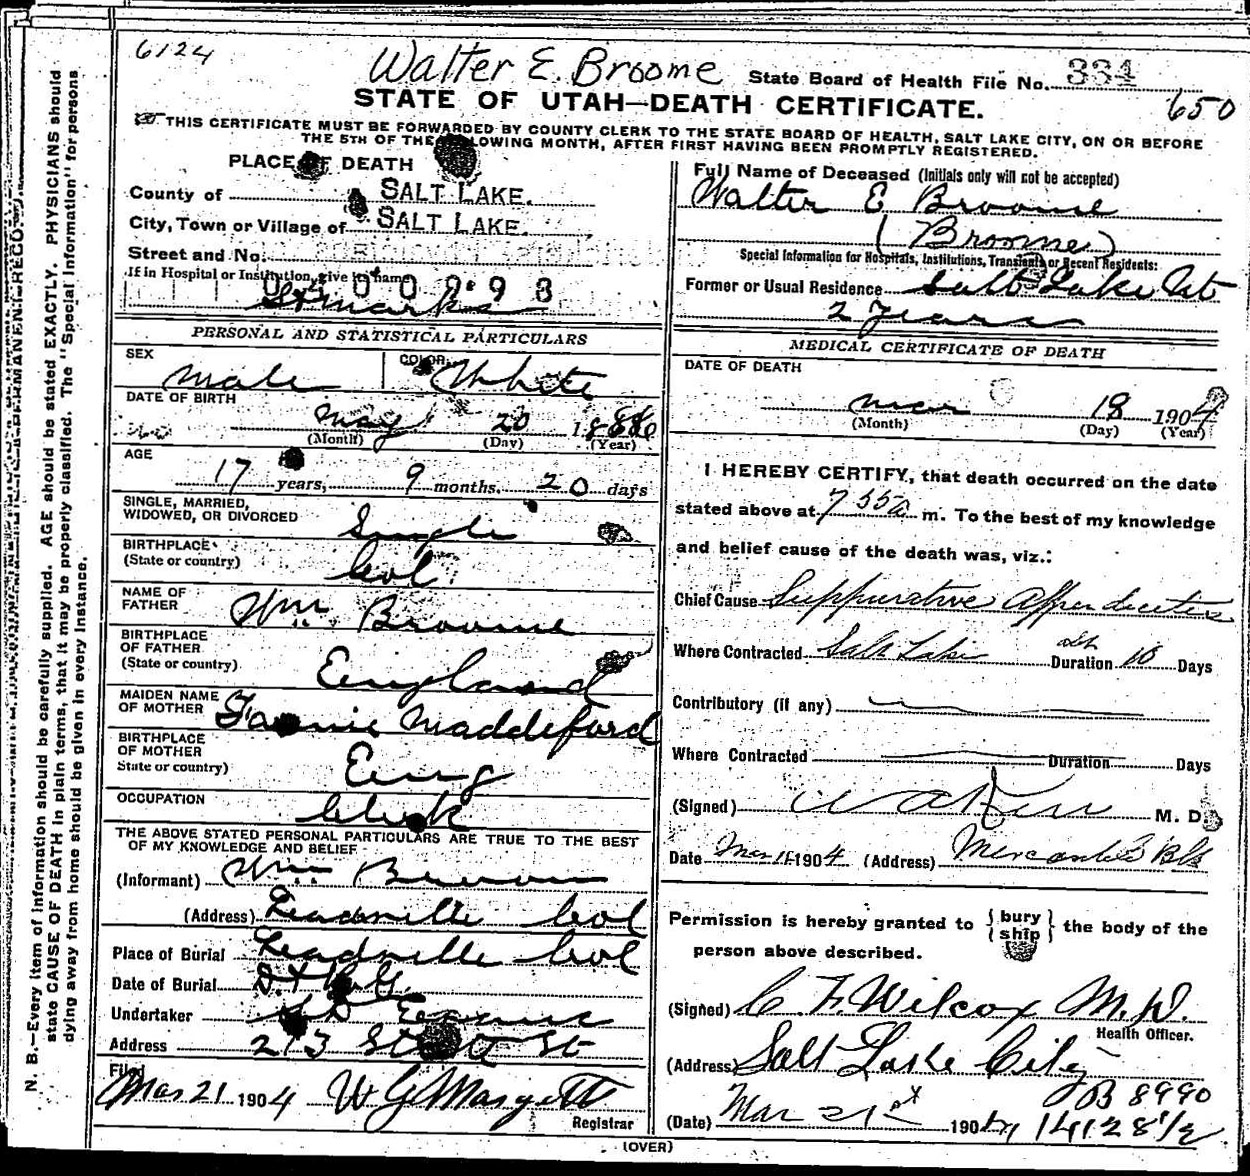 6124
Walter E. Broome State Board of Health File No. 334
STATE OF UTAH—DEATH CERTIFICATE.
650
THIS CERTIFICATE MUST BE FORWARDED BY COUNTY CLERK TO THE STATE BOARD OF HEALTH, SALT LAKE CITY, ON OR BEFORE
THE 5TH OF THE FOLLOWING MONTH, AFTER FIRST HAVING BEEN PROMPTLY REGISTERED.
PLACE OF DEATH
County of SALT LAKE.
City, Town or Village of SALT LAKE.
Street and No.
If in Hospital or Institution, give its name
St Marks
PERSONAL AND STATISTICAL PARTICULARS
SEX Male COLOR White
DATE OF BIRTH
May 20
(Month) (Day) (Year)
AGE
17 years, 9 months. 20 days
SINGLE, MARRIED,
WIDOWED, OR DIVORCED Single
BIRTHPLACE
(State or country) Col.
NAME OF
FATHER Wm Broome
BIRTHPLACE
OF FATHER
(State or country) England
MAIDEN NAME
OF MOTHER Fannie Maddeford
BIRTHPLACE
OF MOTHER
State or country) Eng
OCCUPATION Clerk
THE ABOVE STATED PERSONAL PARTICULARS ARE TRUE TO THE BEST
OF MY KNOWLEDGE AND BELIEF
(Informant) Wm Broome
(Address) Leadville Col
Place of Burial Leadville Col
Date of Burial
Undertaker Evans
Address 213 State St
Filed
Mar 21 1904 W G Margetts
Registrar
Full Name of Deceased (Initials only will not be accepted)
Walter E Broome
(Broome)
Special Information for Hospitals, Institutions, Transients or Recent Residents:
Former or Usual Residence Salt Lake Ut
2 Years
MEDICAL CERTIFICATE OF DEATH
DATE OF DEATH
Mar 18 1904
(Month) (Day) (Year)
I HEREBY CERTIFY, that death occurred on the date
stated above at 7 55a m. To the best of my knowledge
and belief cause of the death was, viz.:
Chief Cause Suppurative Appendicitis
Where Contracted Salt Lake Duration 10 Days
Contributory (if any)
Where Contracted Duration Days
(Signed) M. D.
Date Mar 1904 (Address) Mercantile Blk
Permission is hereby granted to { bury
ship } the body of the
person above described.
(Signed) C F. Wilcox M.D.
Health Officer.
(Address) Salt Lake City
B 8990
(Date) Mar 21st 1904 14128 1/2
(OVER)
N. B.—Every item of information should be carefully supplied. AGE should be stated EXACTLY. PHYSICIANS should
state CAUSE OF DEATH in plain terms, that it may be properly classified. The "Special Information" for persons
dying away from home should be given in every instance.